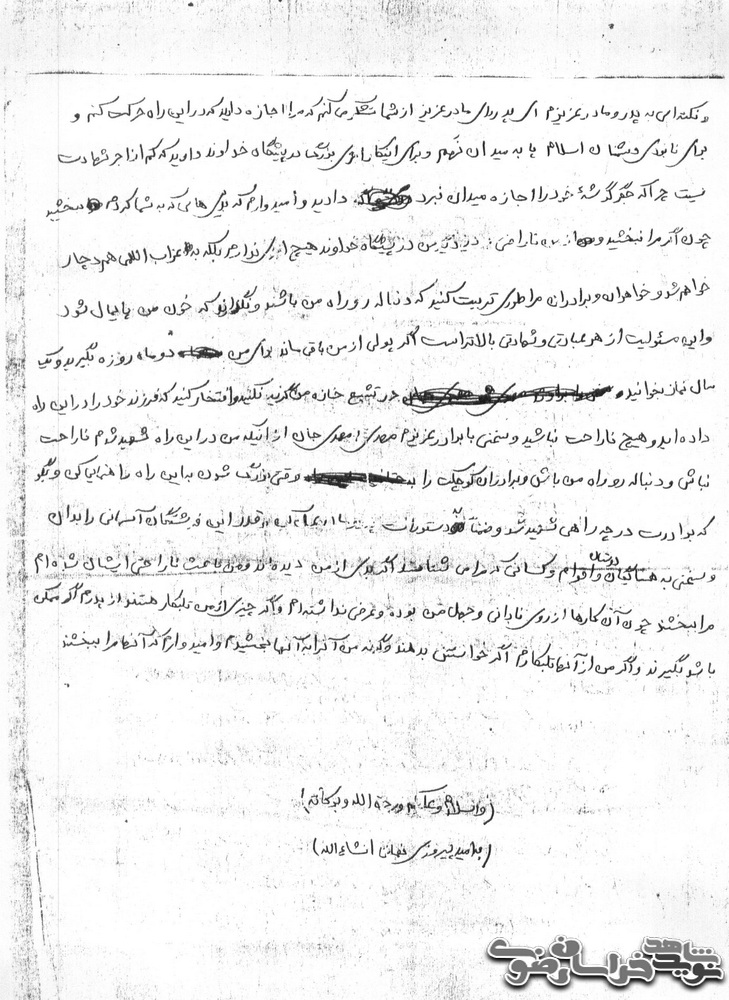 و نکته ای به پدر و مادر عزیزم ای پدر و ای مادر عزیز از شما تشکر می کنم که مرا اجازه دادید که در این راه حرکت کنم و
برای نابودی دشمنان اسلام پا به میدان نهم و برای اینکار اجری بزرگ در پیشگاه خداوند دارید که کم از اجر شهادت
نیست چرا که جگر گوشهٔ خود را اجازه میدان نبرد دادید و امیدوارم که بدی هایی که به شما کردم ببخشید
چون اگر مرا نبخشید و از من ناراضی من در پیشگاه خداوند هیچ اجری ندارم بلکه به عذاب اللهی هم دچار
خواهم شد و خواهران و برادران مرا طوری تربیت کنید که دنباله رو راه من باشند و نگذارند که خون من پایمال شود
و این مسئولیت از هر عبادتی و شهادتی بالاتر است اگر پولی از من باقی ماند برای من دو ماه روزه بگیرید و یک
سال نماز بخوانید در تشییع جنازه من گریه نکنید و افتخار کنید که فرزند خود را در این راه
داده اید و هیچ ناراحت نباشید و سخنی با برادر عزیزم مهدی؛ مهدی جان از اینکه من در این راه شهید شدم ناراحت
نباش و دنباله رو راه من باش و برادران کوچکت را وقتی بزرگ شدن به این راه راهنمایی کن و بگو
که برادرت در چه راهی شهید شد و ضمناً دستورات امام این فرشتگان آسمانی را بدان
و سخنی به همسایگان و اقوام و دوستان و کسانی که مرا می شناسند اگر بدی از من دیده اند و من باعث ناراحتی ایشان شده ام
مرا ببخشند چون آن کارها از روی نادانی و جهل من بوده و غرضی نداشته ام و اگر چیزی از من طلبکار هستند از پدرم اگر ممکن
باشد بگیرند و اگر من از آنها طلبکارم اگر خواستن بدهند وگرنه من آنرا به آنها بخشیدم و امیدوارم که آنها مرا ببخشند
(والسلام و علیکم و رحمة الله و برکاته)
(به امید پیروزی نهائی انشاءالله)
نوید شاهد خراسان رضوی